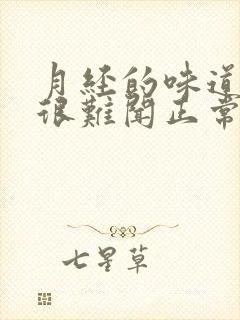 月经的味道
很難聞正常
七星草